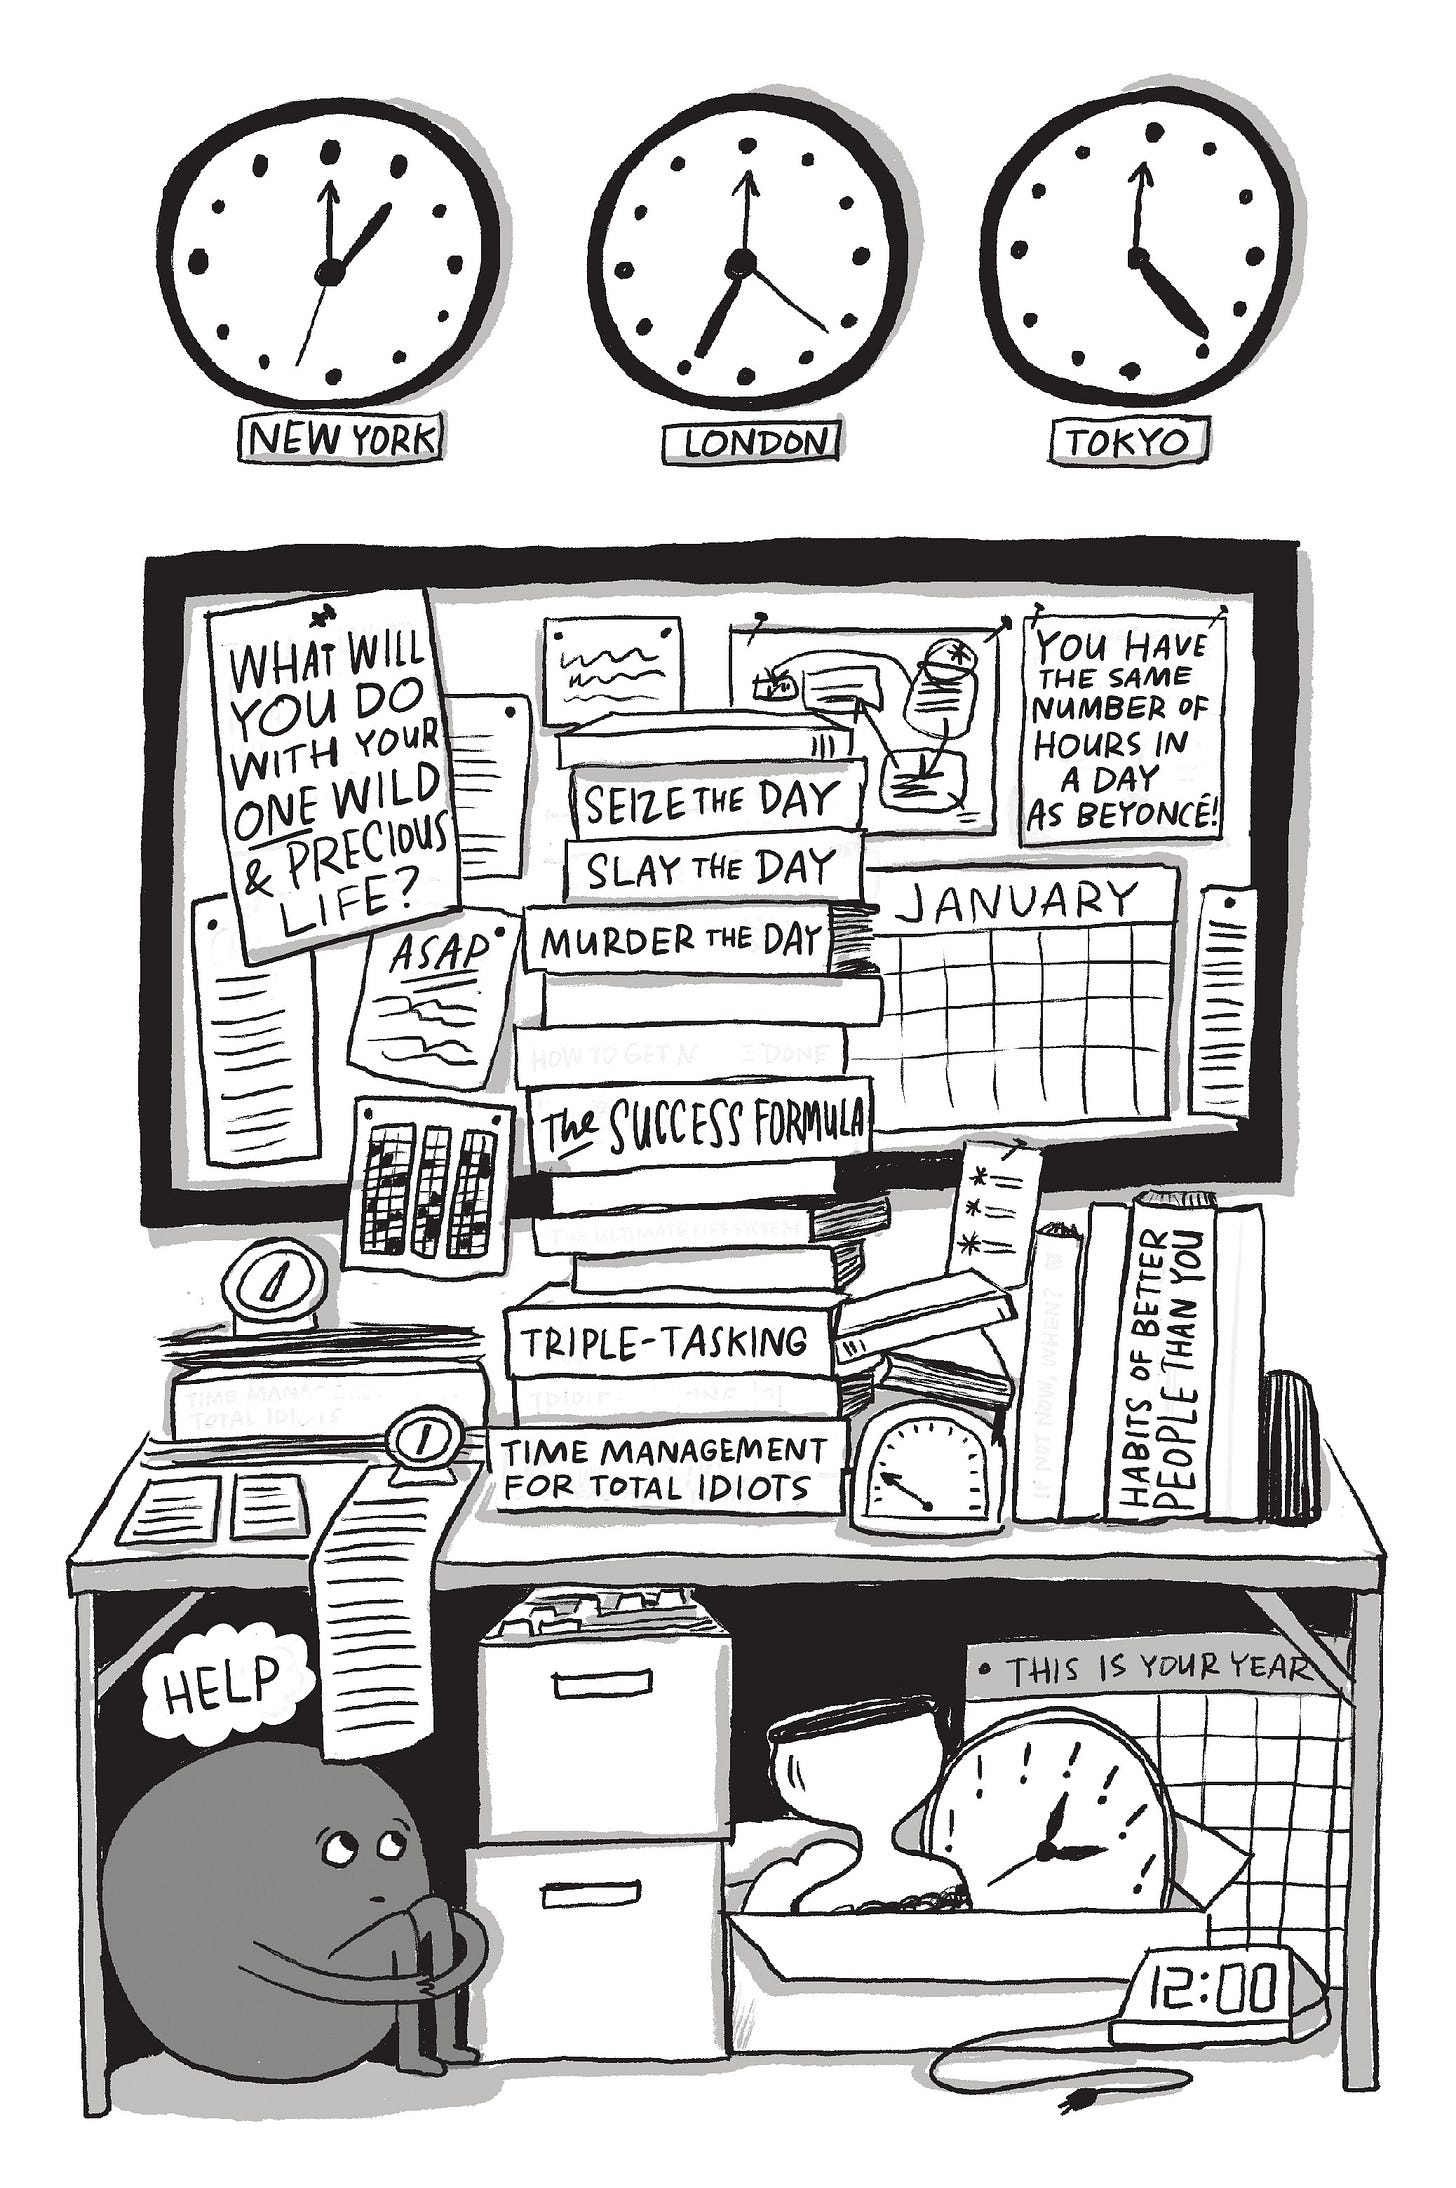 NEW YORK
LONDON
TOKYO
WHAT WILL
YOU DO
WITH YOUR
ONE WILD
& PRECIOUS
LIFE?
YOU HAVE
THE SAME
NUMBER OF
HOURS IN
A DAY
AS BEYONCÉ!
SEIZE THE DAY
SLAY THE DAY
MURDER THE DAY
JANUARY
ASAP
HOW TO GET
DONE
The SUCCESS FORMULA
THE ULTIMATE LIFE SYSTEM
TRIPLE-TASKING
TIME MANAGEMENT
FOR TOTAL IDIOTS
IF NOT NOW, WHEN?
HABITS OF BETTER
PEOPLE THAN YOU
HELP
THIS IS YOUR YEAR
12:00